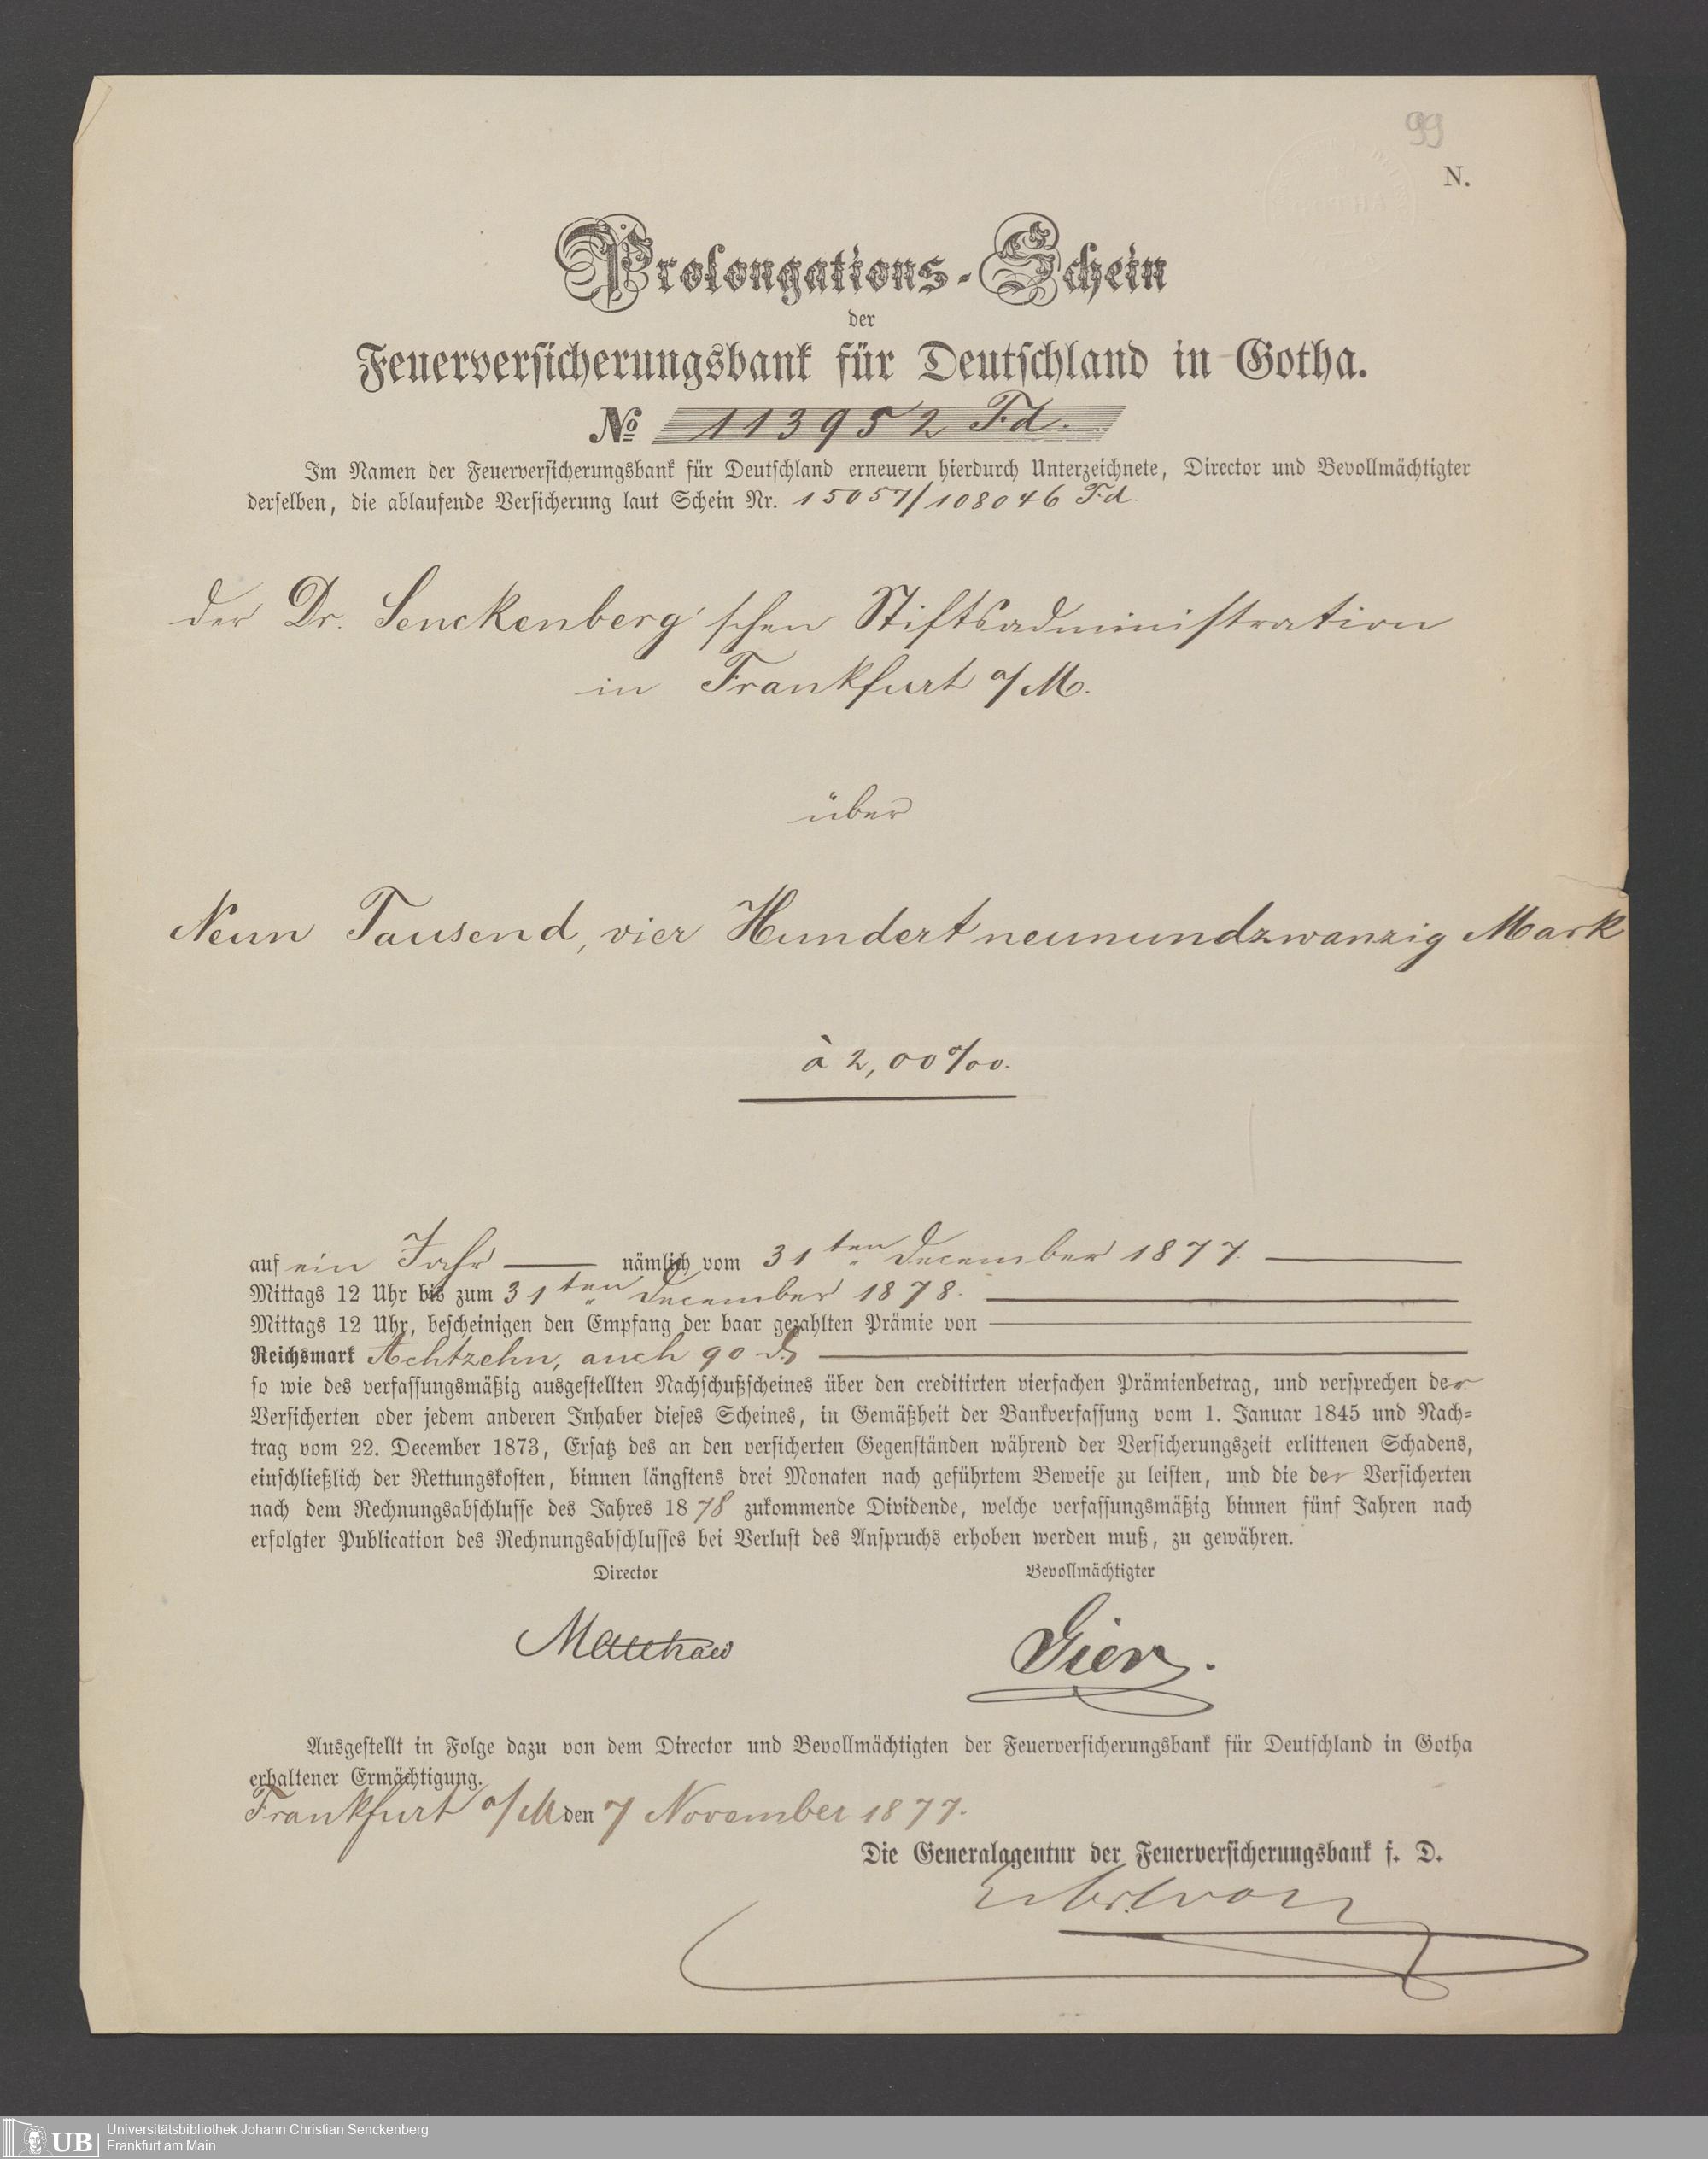 99
N.
Prolongations-Schein
der
Feuerversicherungsbank für Deutschland in Gotha.
No 113952 Fd.
Im Namen der Feuerversicherungsbank für Deutschland erneuern hierdurch Unterzeichnete, Director und Bevollmächtigter
derselben, die ablaufende Versicherung laut Schein Nr. 15057/108046 Fd.
der Dr. Senckenberg'schen Stiftsadministration
in Frankfurt a/M.
über
Neun Tausend, vier Hundert neunundzwanzig Mark
à 2,00 ‰.
auf ein Jahr nämlich vom 31ten December 1877.
Mittags 12 Uhr bis zum 31ten December 1878.
Mittags 12 Uhr, bescheinigen den Empfang der baar gezahlten Prämie von
Reichsmark Achtzehn, auch 90 ₰
so wie des verfassungsmäßig ausgestellten Nachschußscheines über den creditirten vierfachen Prämienbetrag, und versprechen der
Versicherten oder jedem anderen Inhaber dieses Scheines, in Gemäßheit der Bankverfassung vom 1. Januar 1845 und Nach-
trag vom 22. December 1873, Ersatz des an den versicherten Gegenständen während der Versicherungszeit erlittenen Schadens,
einschließlich der Rettungskosten, binnen längstens drei Monaten nach geführtem Beweise zu leisten, und die der Versicherten
nach dem Rechnungsabschlusse des Jahres 1878 zukommende Dividende, welche verfassungsmäßig binnen fünf Jahren nach
erfolgter Publication des Rechnungsabschlusses bei Verlust des Anspruchs erhoben werden muß, zu gewähren.
Director Bevollmächtigter
Gier.
Ausgestellt in Folge dazu von dem Director und Bevollmächtigten der Feuerversicherungsbank für Deutschland in Gotha
erhaltener Ermächtigung.
Frankfurt a/M den 7 November 1877.
Die Generalagentur der Feuerversicherungsbank f. D.
UB
Universitätsbibliothek Johann Christian Senckenberg
Frankfurt am Main